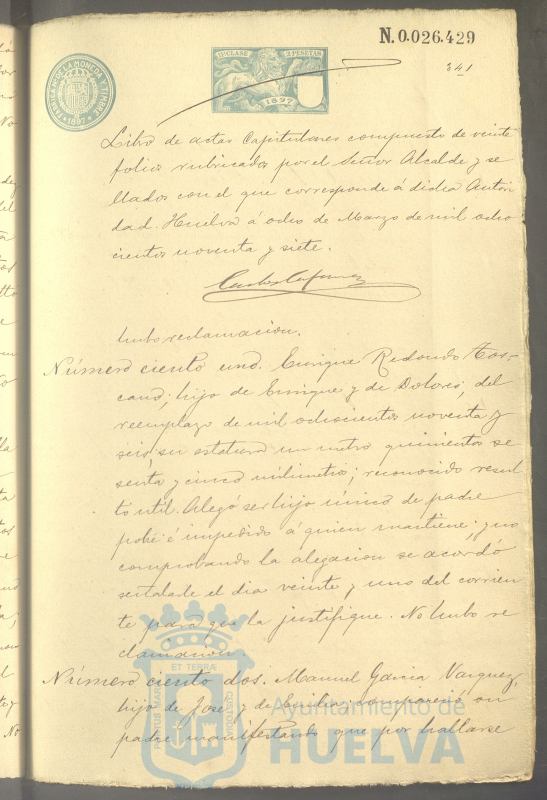 N.0.026.429
341
11ª CLASE 2 PESETAS
1897
FABRICA DE LA MONEDA Y TIMBRE
1897
Libro de actas Capitulares compuesto de veinte
folios rubricados por el Señor Alcalde y se
llados con el que corresponde á dicha Autori
dad. Huelva á ocho de Marzo de mil ocho
cientos noventa y siete.
hubo reclamacion.
Número ciento uno. Enrique Redondo Tos-
cano, hijo de Enrique y de Dolores, del
reemplazo de mil ochocientos noventa y
seis, su estatura un metro quinientos se
senta y cinco milimetros; reconocido resul
tó util. Alegó ser hijo único de padre
pobre é impedido á quien mantiene; y no
comprobando la alegacion se acordó
señalarle el dia veinte y uno del corrien
te para que la justifique. No hubo re
clamacion.
Número ciento dos. Manuel Garcia Vazquez,
hijo de José y de compareció su
padre manifestando que por hallarse
PORTUS MARIS ET TERRÆ CUSTODIA
Ayuntamiento de
HUELVA